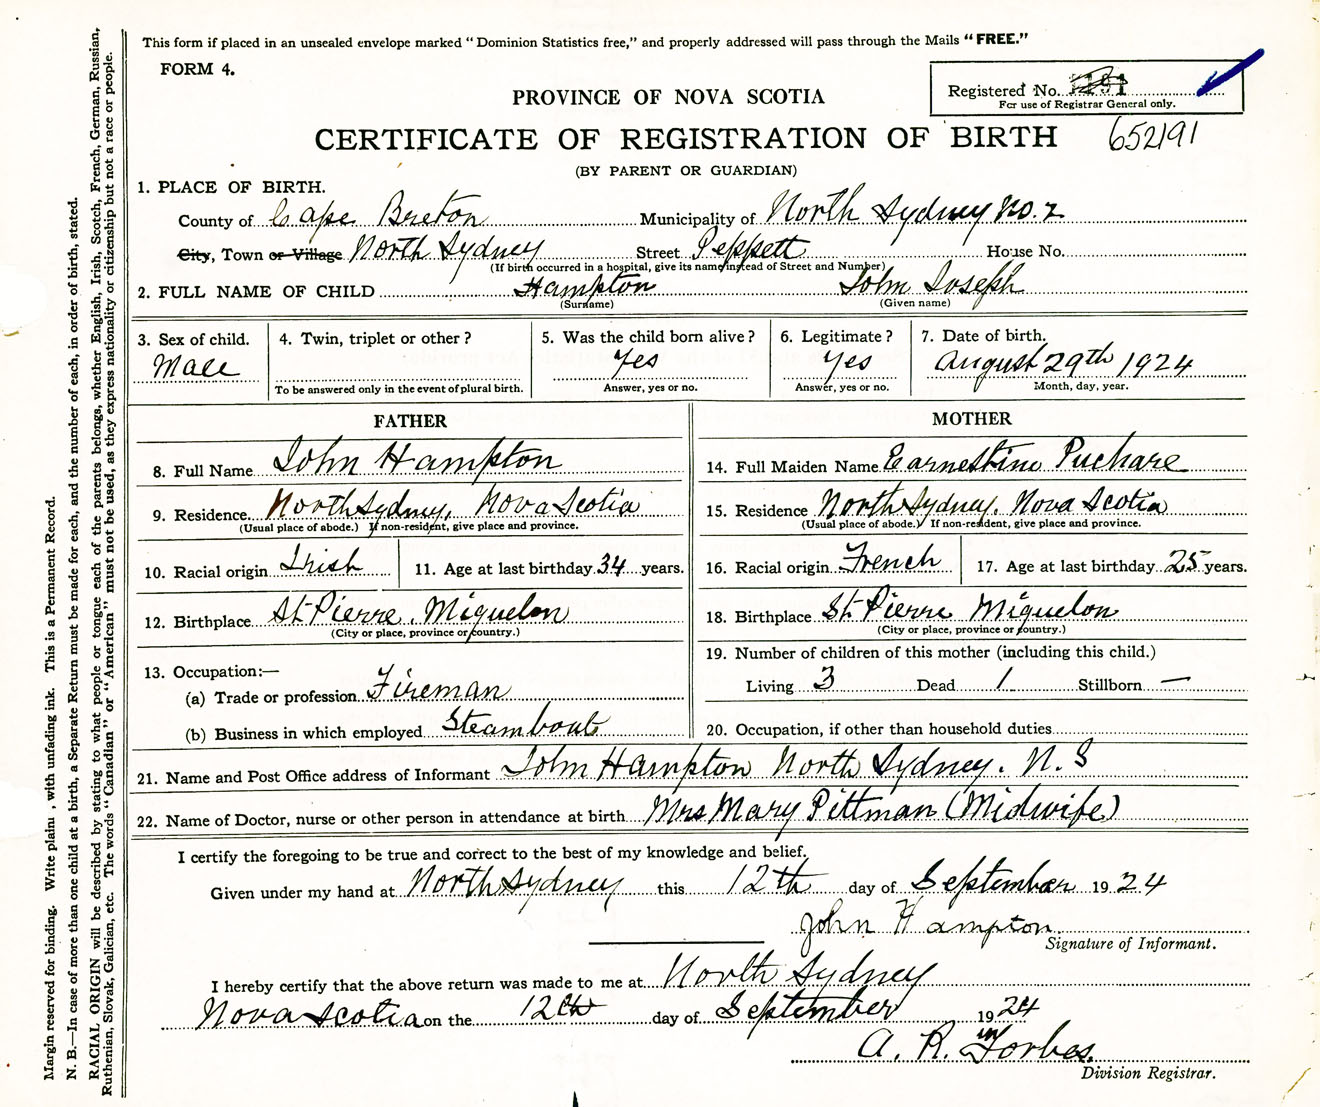 This form if placed in an unsealed envelope marked "Dominion Statistics free," and properly addressed will pass through the Mails "FREE."
FORM 4.
Registered No.
For use of Registrar General only.
PROVINCE OF NOVA SCOTIA
CERTIFICATE OF REGISTRATION OF BIRTH 652191
(BY PARENT OR GUARDIAN)
1. PLACE OF BIRTH.
County of Cape Breton Municipality of North Sydney No. 2
City, Town or Village North Sydney Street Peppett House No.
(If birth occurred in a hospital, give its name instead of Street and Number)
2. FULL NAME OF CHILD Hampton John Joseph
(Surname) (Given name)
3. Sex of child. 4. Twin, triplet or other? 5. Was the child born alive? 6. Legitimate? 7. Date of birth.
Male Yes Yes August 29th 1924
To be answered only in the event of plural birth. Answer, yes or no. Answer, yes or no. Month, day, year.
FATHER
8. Full Name John Hampton
9. Residence North Sydney, Nova Scotia
(Usual place of abode.) If non-resident, give place and province.
10. Racial origin Irish 11. Age at last birthday 34 years.
12. Birthplace St. Pierre, Miquelon
(City or place, province or country.)
13. Occupation:—
(a) Trade or profession Fireman
(b) Business in which employed Steamboat
MOTHER
14. Full Maiden Name Earnestine Puchare
15. Residence North Sydney, Nova Scotia
(Usual place of abode.) If non-resident, give place and province.
16. Racial origin French 17. Age at last birthday 25 years.
18. Birthplace St. Pierre Miquelon
(City or place, province or country.)
19. Number of children of this mother (including this child.)
Living 3 Dead 1 Stillborn —
20. Occupation, if other than household duties
21. Name and Post Office address of Informant John Hampton North Sydney. N. S
22. Name of Doctor, nurse or other person in attendance at birth Mrs Mary Pittman (Midwife)
I certify the foregoing to be true and correct to the best of my knowledge and belief.
Given under my hand at North Sydney this 12th day of September 1924
John Hampton
Signature of Informant.
I hereby certify that the above return was made to me at North Sydney
Nova Scotia on the 12th day of September 1924
A. R. Forbes.
Division Registrar.
Margin reserved for binding. Write plainl, with unfading ink. This is a Permanent Record.
N. B.—In case of more than one child at a birth, a Separate Return must be made for each, and the number of each, in order of birth, stated.
RACIAL ORIGIN will be described by stating to what people or tongue each of the parents belongs, whether English, Irish, Scotch, French, German, Russian,
Ruthenian, Slovak, Galician, etc. The words "Canadian" or "American" must not be used, as they express nationality or citizenship but not a race or people.